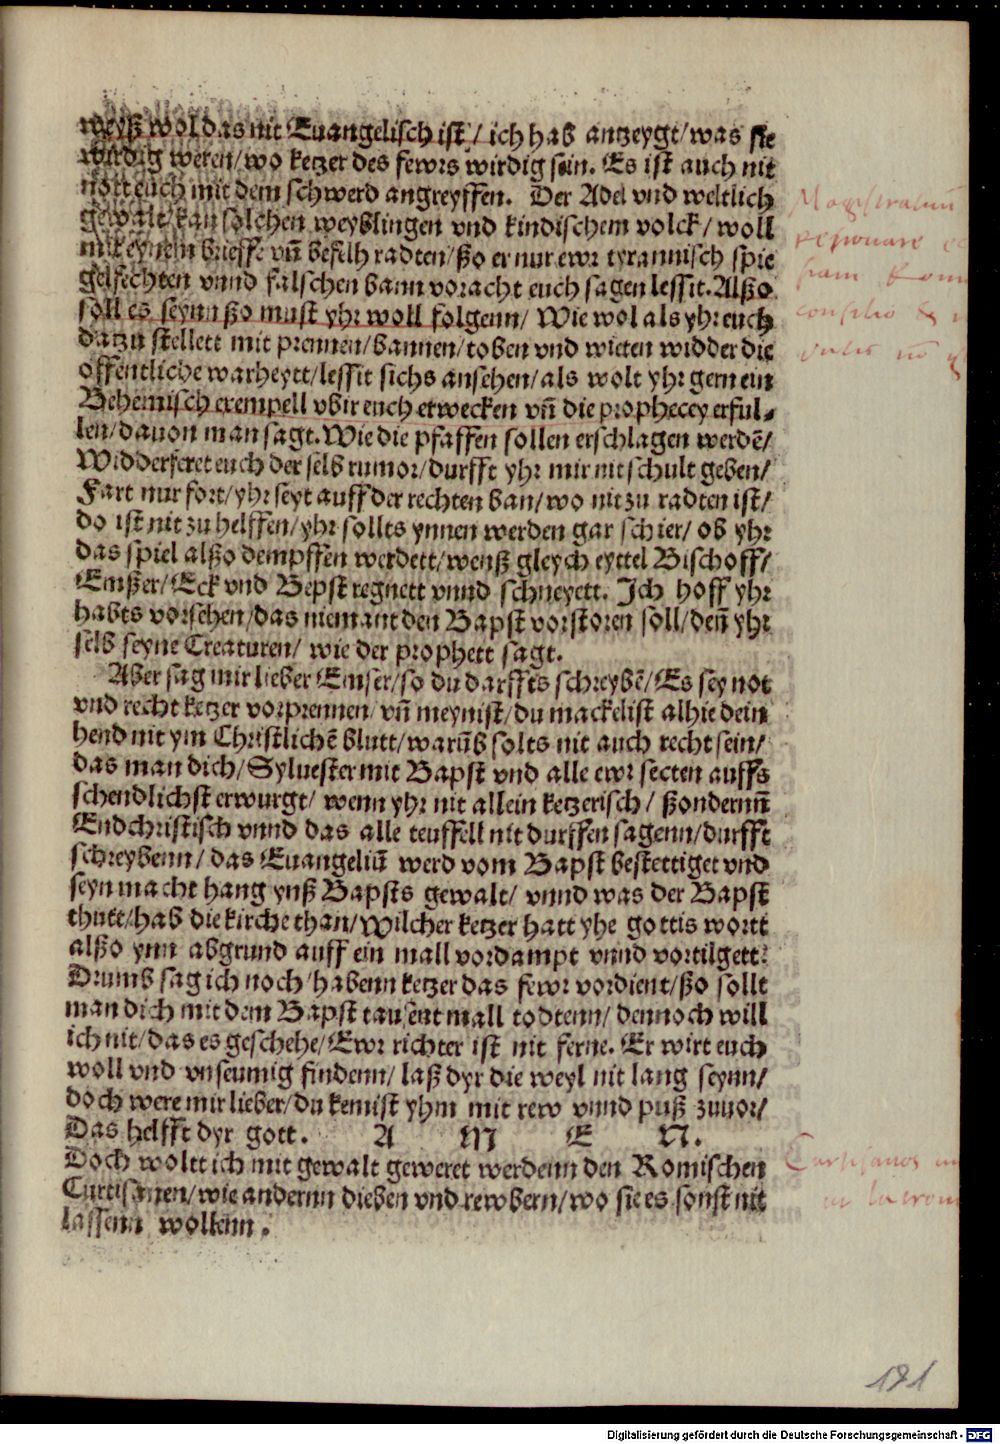 weyß wol das nit Euangelisch ist / ich hab antzeygt/ was sie
wirdig weren/ wo ketzer des fewrs wirdig sein. Es ist auch nit
nott euch mit dem schwerd angreyffen. Der Adel vnd weltlich
gewalt/ kan solchen weyblingen vnd kindischem volck/ woll
mit eynem brieffe vn̄ befelh radten/ ßo er nur ewr tyrannisch spie
gelfechten vnnd falschen bann voracht euch sagen lessit. Alßo
soll es seynn ßo must yhr woll folgenn/ Wie wol als yhr euch
datzu stellett mit prennen/ bannen/ toben vnd wieten widder die
offentliche warheytt/ lessit sichs ansehen/ als wolt yhr gern ein
Behemisch exempell vbir euch erwecken vn̄ die prophecey erful⸗
len/ dauon man sagt. Wie die pfaffen sollen erschlagen werdē/
Widderferet euch der selb rumor/ durfft yhr mir nit schult geben/
Fart nur fort/ yhr seyt auff der rechten ban/ wo nit zu radten ist/
do ist nit zu helffen/ yhr sollts ynnen werden gar schier/ ob yhr
das spiel alßo dempffen werdett/ wenß gleych eyttel Bischoff/
Emßer/ Eck vnd Bepst regnett vnnd schneyett. Ich hoff yhr
habts vorsehen/ das niemant den Bapst vorstoren soll/ den̄ yhr
selb seyne Creaturen/ wie der prophett sagt.
Aber sag mir lieber Emser/ so du darffts schreybē/ Es sey not
vnd recht ketzer vorprennen/ vn̄ meynist/ du mackelist alhie dein
hend nit ym Christlichē blutt/ warūb solts nit auch recht sein/
das man dich/ Syluester mit Bapst vnd alle ewr secten auffs
schendlichst erwurgt/ wenn yhr nit allein ketzerisch / ßondernn̄
Endchristisch vnnd das alle teuffell nit durffen sagenn/ durfft
schreybenn/ das Euangeliū werd vom Bapst bestettiget vnd
seyn macht hang ynß Bapsts gewalt/ vnnd was der Bapst
thutt/ hab die kirche than/ Wilcher ketzer hatt yhe gottis wortt
alßo ynn abgrund auff ein mall vordampt vnnd vortilgett?
Drumb sag ich noch/ habenn ketzer das fewr vordient/ ßo sollt
man dich mit dem Bapst tausent mall todtenn/ dennoch will
ich nit/ das es geschehe/ Ewr richter ist nit ferne. Er wirt euch
woll vnd vnseumig findenn/ laß dyr die weyl nit lang seynn/
doch were mir lieber/ du kemist yhm mit rew vnnd puß zuuor/
Das helfft dyr gott. A M E N.
Doch woltt ich mit gewalt geweret werdenn den Romischen
Curtisanen/ wie andernn dieben vnd rewbern/ wo sie es sonst nit
lassenn wollenn.
Magistratum
191
Digitalisierung gefördert durch die Deutsche Forschungsgemeinschaft - DFG